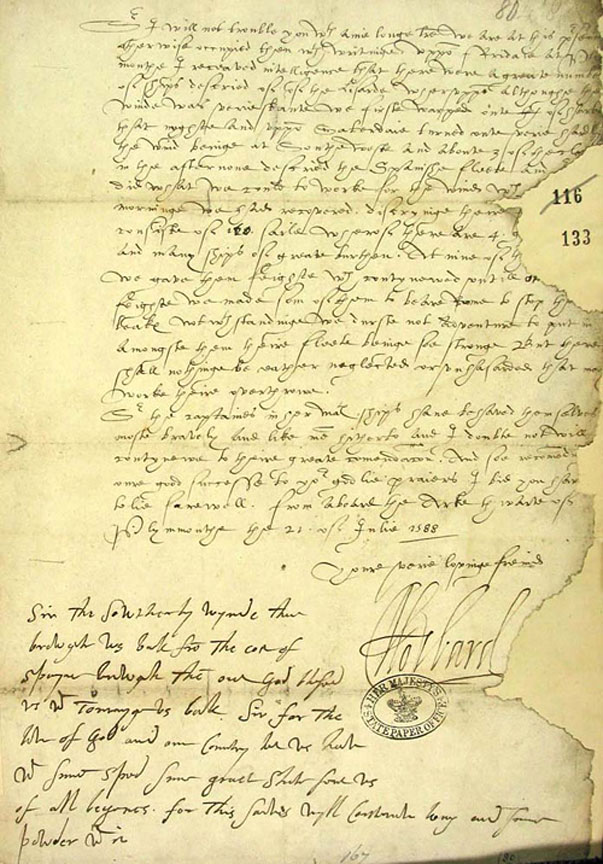 80
Sr I will not trouble you wth anie longe lre, we are at this present
otherwise occupied then wth writinge. uppõ Fridaie at Plim
mouthe I receaved intelligence that there were a greate number
of ships descried of of the Lisarde, wheruppõ althoughe the
winde was verie skante we firste warped oute of harbor
that nyghte and uppõ Saterdaie turned oute verie hardly
the wind beinge at Southe weste and aboute 3 of the clock
in the afternone descried the Spanishe fleete and
did what we could to worke for the wind wch
morninge we had recovered discryinge theire
consiste of 120 saile wherof there are 4 g
and many ships of greate burthen. At nine of the
we gave them feighte wch contynewed untill
feighte we made som of them to beare rome to stop their
leaks. notwthstandinge we durste not adventure to put in
amongste them theire fleete beinge soe stronge. But there
shall nothinge be eather neglected or unhasarded that may
worke theire overthrowe.
Sr the captaines in her Mats ships have behaved themselves
moste bravely and like mẽ hitherto and I doubte not will
contynewe to theire greate comendacon. And soe recomendi
oure good successe to yor godlie praiers I bid you hart
telie farewell. From aboarde the Arke thwarte of
Plymmouthe the 21 of Julie 1588
Youre verie lovinge freind
116
133
C Howard
HER MAJESTY'S STATE PAPER OFFICE
Sir the Southerly wynde that
browght us bak frõ the cost of
Spayne browght them out God blessed
us wt tornynge us bak. Sir for the
love of God and our country let us have
wt sume sped some great shote sent us
of all bignes. for this sarvis wyll contineu long and some
powder wt it
167